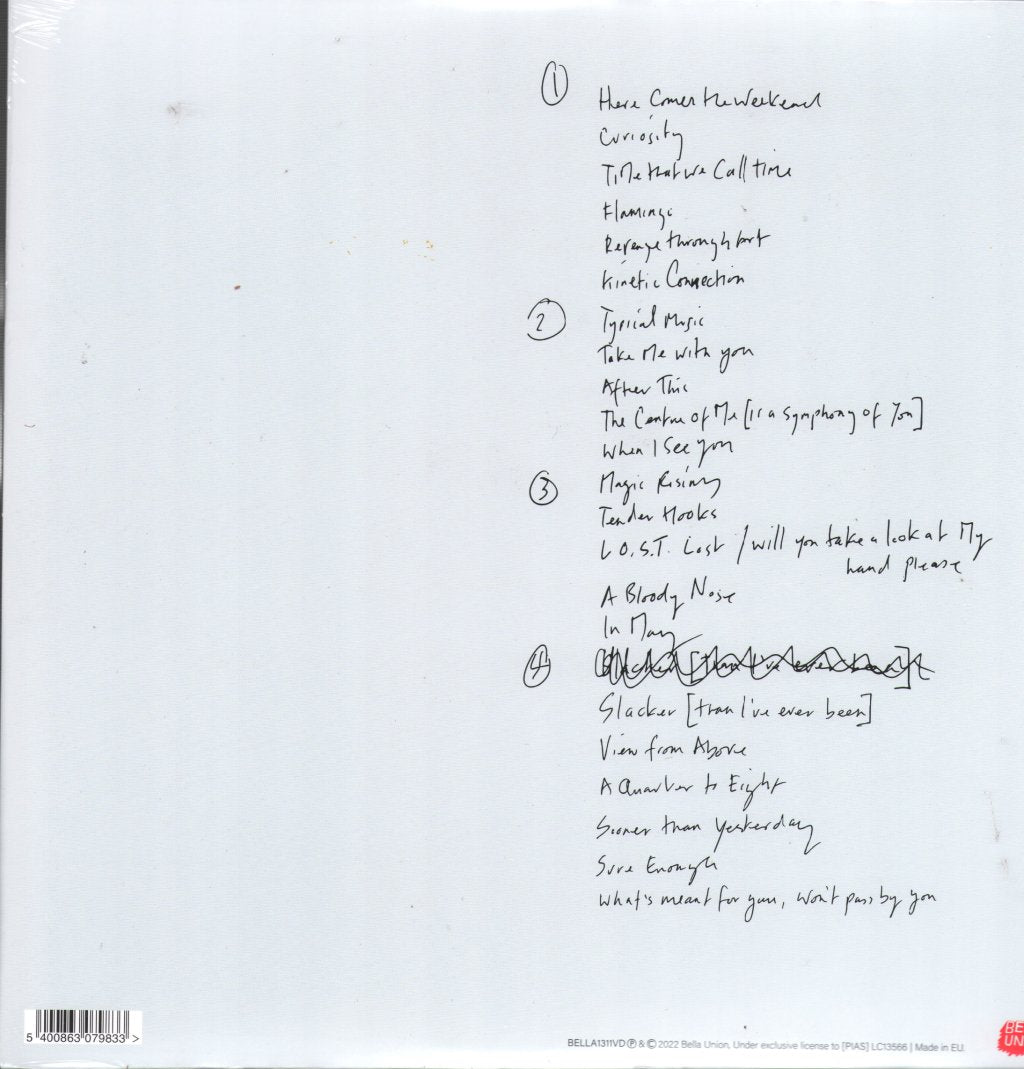 1
Here Comes the Weekend
Curiosity
Time that we Call time
Flamingo
Revenge through Art
Kinetic Connection
2
Typical Music
Take Me with you
After This
The Centre of Me [Is a Symphony of You]
When I See You
3
Magic Rising
Tender Hooks
L.O.S.T. Lost / will you take a look at My
hand please
A Bloody Nose
In May
4
Slacker [than I've ever been]
View from Above
A Quarter to Eight
Sooner than Yesterday
Sure Enough
What's meant for you, won't pass by you
5 400863 079833 >
BELLA1311VD Ⓟ & © 2022 Bella Union, Under exclusive license to [PIAS] LC13566 | Made in EU.
BE
UN